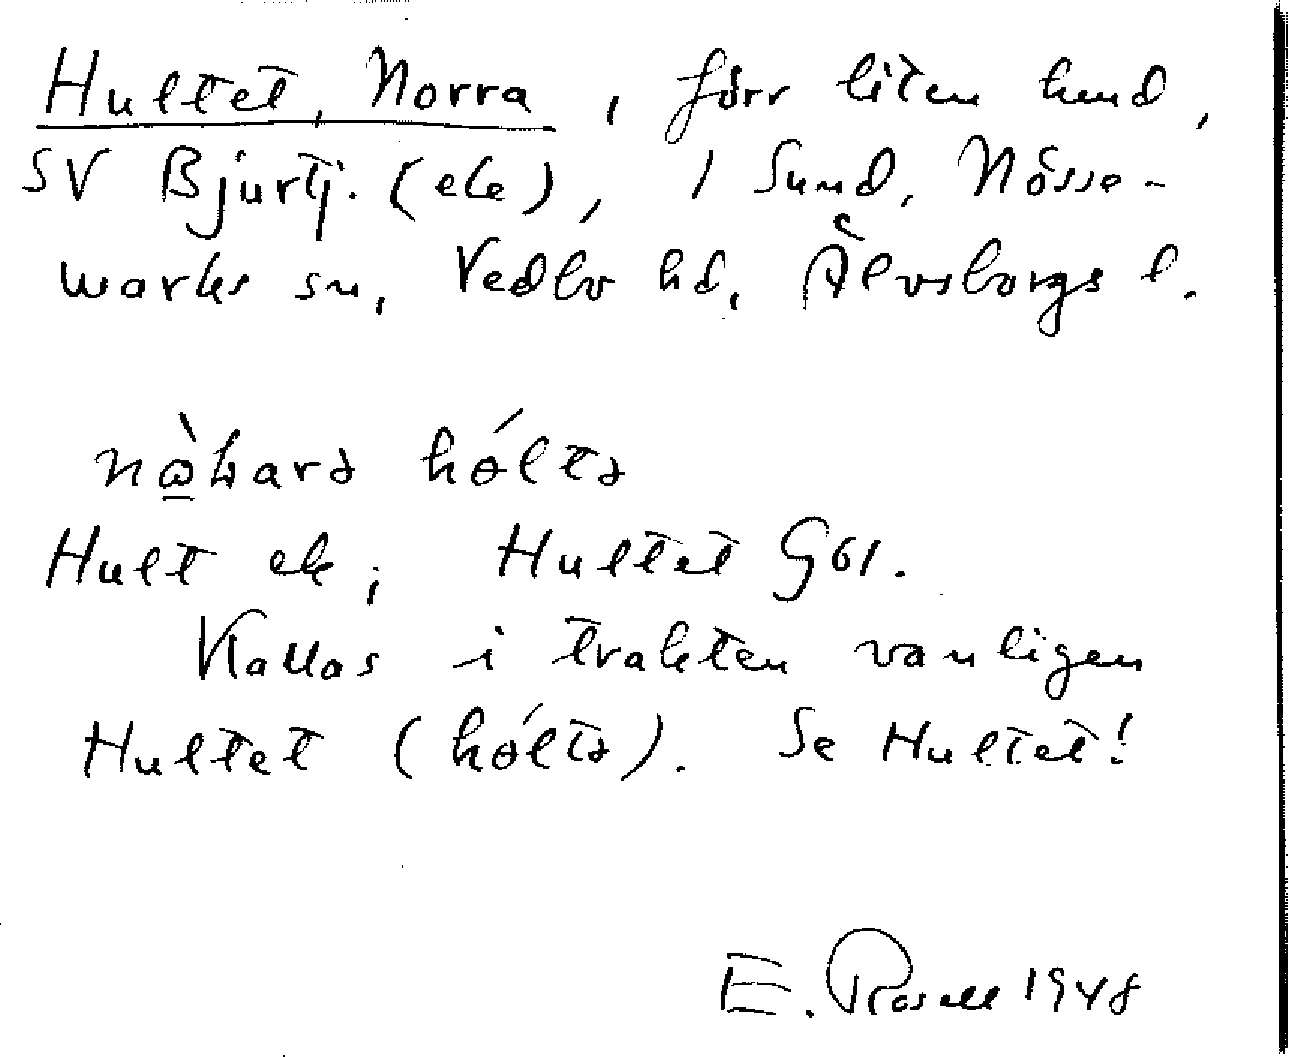 Hultet, Norra, förr liten hmd,
SV Bjurtj. (ek), i Sund, Nösse-
marks sn, Vedbo hd, Älvsborgs l.
hóltə
Hult ek; Hultet G61.
Kallas i trakten vanligen
Hultet (hóltə). Se Hultet!
E. Rosell 1948